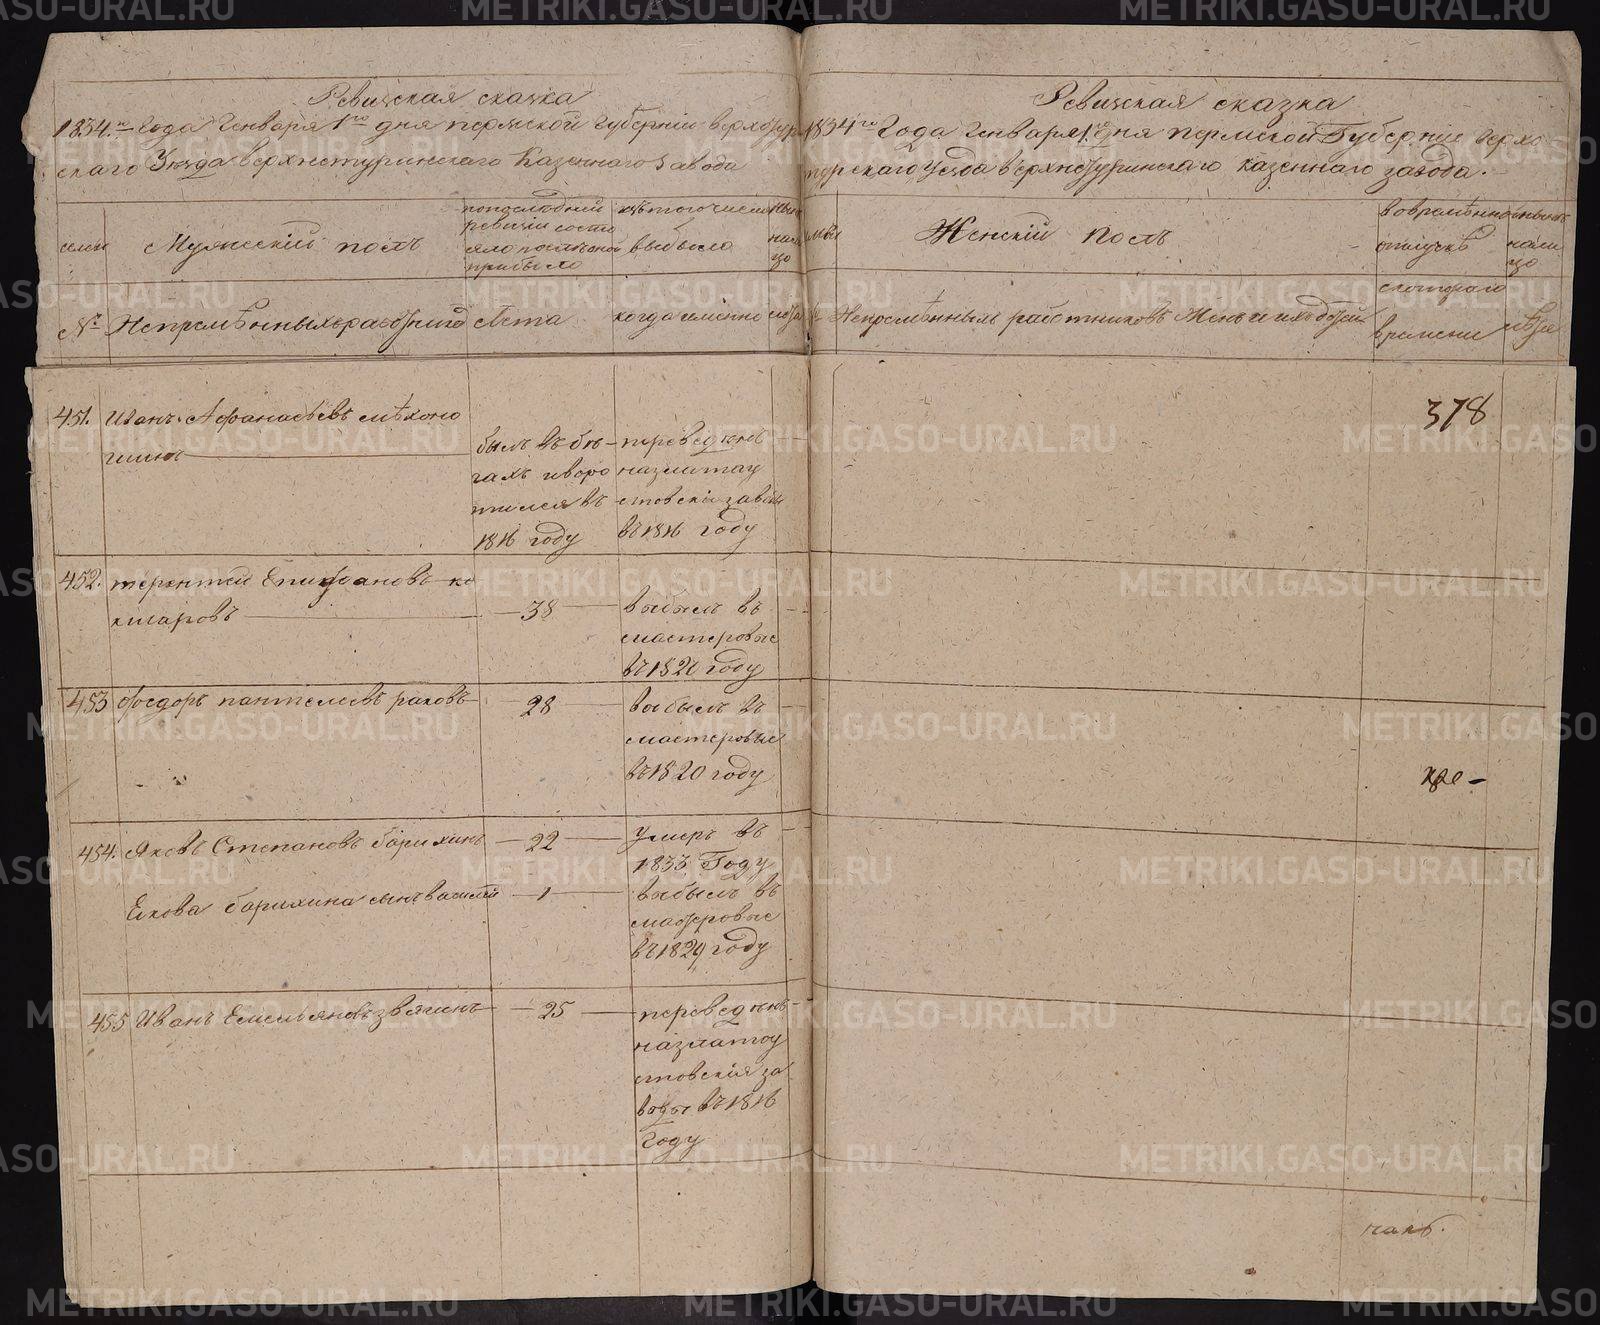 Ревизская сказка
1834.го Года Генваря 1го дня пермской Губернiи верхотур
скаго Уезда верхнетуринскаго Казеннаго завода
семьи
Мужескiй полъ
попоследней
ревизiи состо
яло и после оной
прибыло
изъ того числа
выбыло
ныне
нали
цо
№
Непременныхъ работниковъ
Лета
когда именно
лета
451. Иванъ Афанасьевъ
былъ въ бе
гахъ и воро
тился въ
1816 году
переведенъ
на златоу
стовскiи заводы
въ 1816 году
452. терентей Епифановъ ко
киаровъ
38
выбылъ въ
мастеровые
въ 1820 году
453 федоръ пантелеевъ раковъ
28
выбылъ въ
мастеровые
въ 1820 году
454. Яковъ Степановъ барихинъ
22
умеръ въ
1833 Году
Екова барихина сынъ василей
1
выбылъ въ
мастеровые
въ 1829 году
455 Иванъ Емельяновъ звягинъ
25
переведенъ
на златоу
стовскiя за
воды въ 1816
Году
Ревизская сказка
1834го Года Генваря 1го дня пермской Губернiи верхо
турскаго уезда верхнетуринскаго казеннаго завода.
семьи
Женскiй полъ
во временной
отлучкѣ
ныне
нали
цо
№
Непременныхъ работниковъ Жены и ихъ дети
скотораго
времени
лета
378
чакъ.
METRIKI.GASO-URAL.RU